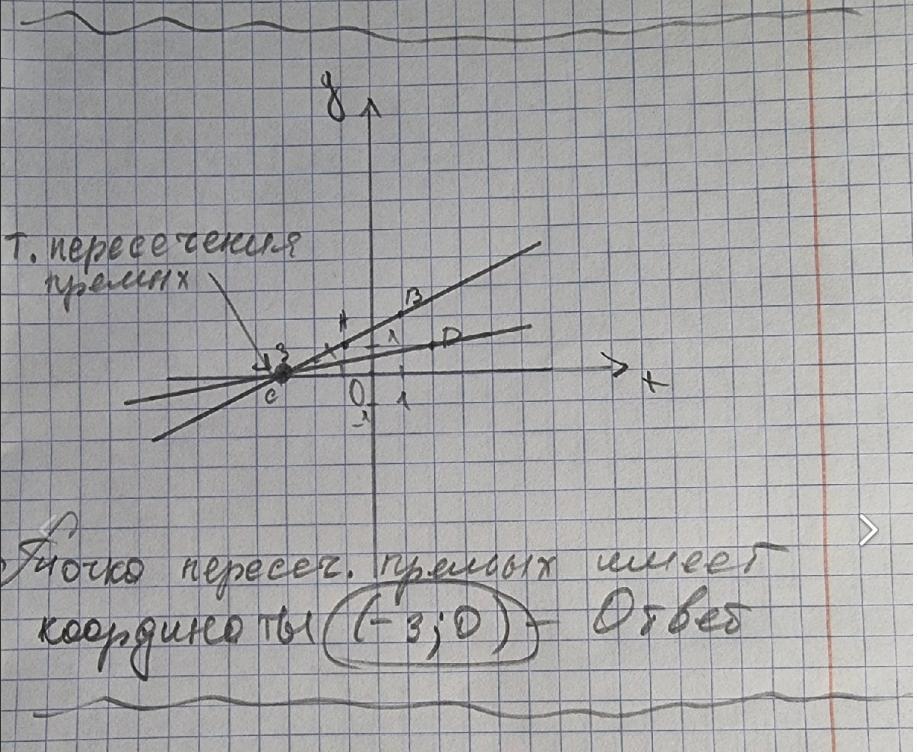 y
т. пересечения
прямых
A
B
3
1
D
C
0
1
x
-1
Точка пересеч. прямых имеет
координаты (-3;0) - Ответ